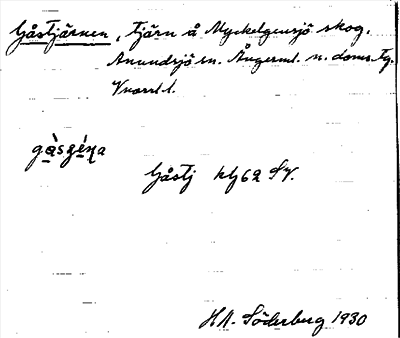 Gåstjärnen, tjärn å Myckelgensjö skog,
Anundsjö sn. Ångerml. n. doms. tg.
Vnorrl l.
Gåstj kg 62 SV.
H.A. Söderberg 1930